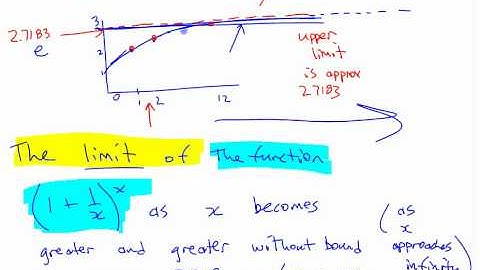 3
2.7183
e
2
1
0 1 2 12
upper
limit
is approx
2.7183
The limit of the function
(1 + 1/x)^x as x becomes (as x
greater and greater without bound approaches
infinity)